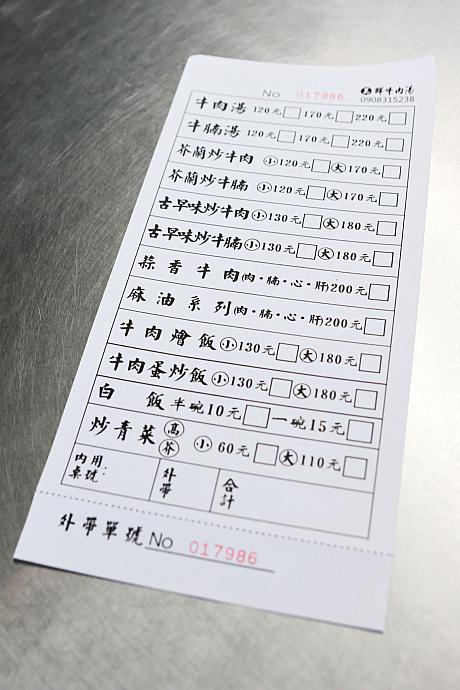 No 017986 鮮牛肉湯
0908315238
牛肉湯 120元 170元 220元
牛腩湯 120元 170元 220元
芥蘭炒牛肉 小120元 大170元
芥蘭炒牛腩 小120元 大170元
古早味炒牛肉 小130元 大180元
古早味炒牛腩 小130元 大180元
蒜香牛肉(肉·腩·心·肝)200元
麻油系列(肉·腩·心·肝)200元
牛肉燴飯 小130元 大180元
牛肉蛋炒飯 小130元 大180元
白飯 半碗10元 一碗15元
炒青菜 高 芥 小 60元 大110元
內用桌號: 外帶 合計
外帶單號 No 017986